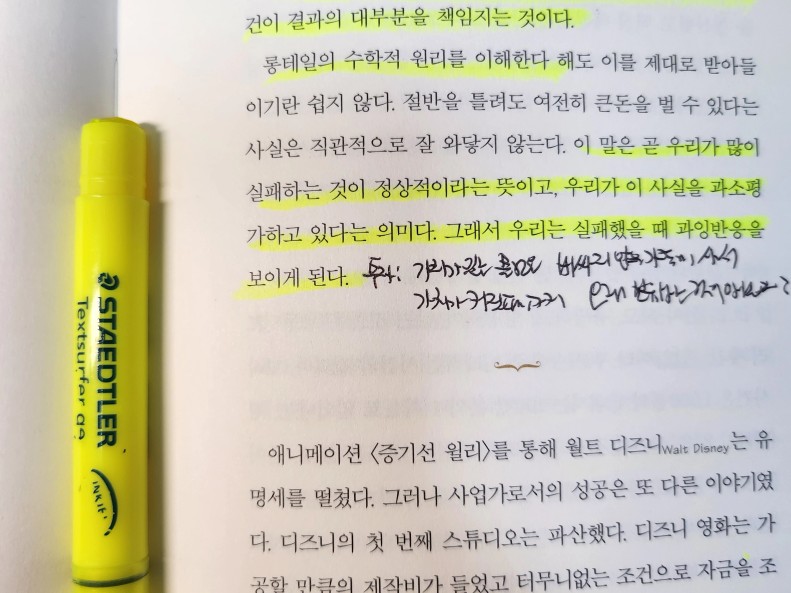 건이 결과의 대부분을 책임지는 것이다.
롱테일의 수학적 원리를 이해한다 해도 이를 제대로 받아들
이기란 쉽지 않다. 절반을 틀려도 여전히 큰돈을 벌 수 있다는
사실은 직관적으로 잘 와닿지 않는다. 이 말은 곧 우리가 많이
실패하는 것이 정상적이라는 뜻이고, 우리가 이 사실을 과소평
가하고 있다는 의미다. 그래서 우리는 실패했을 때 과잉반응을
보이게 된다. 투자: 가치가 있는
가치가 커질때까지
애니메이션 〈증기선 윌리〉를 통해 월트 디즈니Walt Disney는 유
명세를 떨쳤다. 그러나 사업가로서의 성공은 또 다른 이야기였
다. 디즈니의 첫 번째 스튜디오는 파산했다. 디즈니 영화는 가
공할 만큼의 제작비가 들었고 터무니없는 조건으로 자금을 조
STAEDTLER
Textsurfer
INKJET